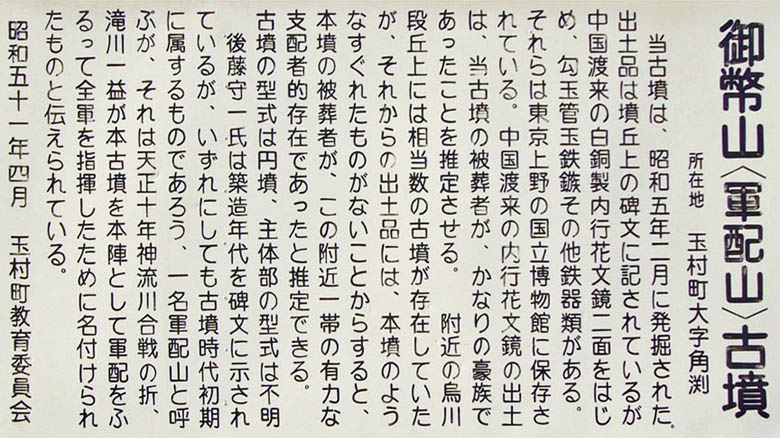 御幣山〈軍配山〉古墳
所在地　玉村町大字角渕
当古墳は、昭和五年二月に発掘された。
出土品は墳丘上の碑文に記されているが
中国渡来の白銅製内行花文鏡二面をはじ
め、勾玉管玉鉄鏃その他鉄器類がある。
それらは東京上野の国立博物館に保存さ
れている。中国渡来の内行花文鏡の出土
は、当古墳の被葬者が、かなりの豪族で
あったことを推定させる。　附近の烏川
段丘上には相当数の古墳が存在していた
が、それからの出土品には、本墳のよう
なすぐれたものがないことからすると、
本墳の被葬者が、この附近一帯の有力な
支配者的存在であったと推定できる。
古墳の型式は円墳、主体部の型式は不明
後藤守一氏は築造年代を碑文に示され
ているが、いずれにしても古墳時代初期
に属するものであろう、一名軍配山と呼
ぶが、それは天正十年神流川合戦の折、
滝川一益が本古墳を本陣として軍配をふ
るって全軍を指揮したために名付けられ
たものと伝えられている。
昭和五十一年四月　玉村町教育委員会